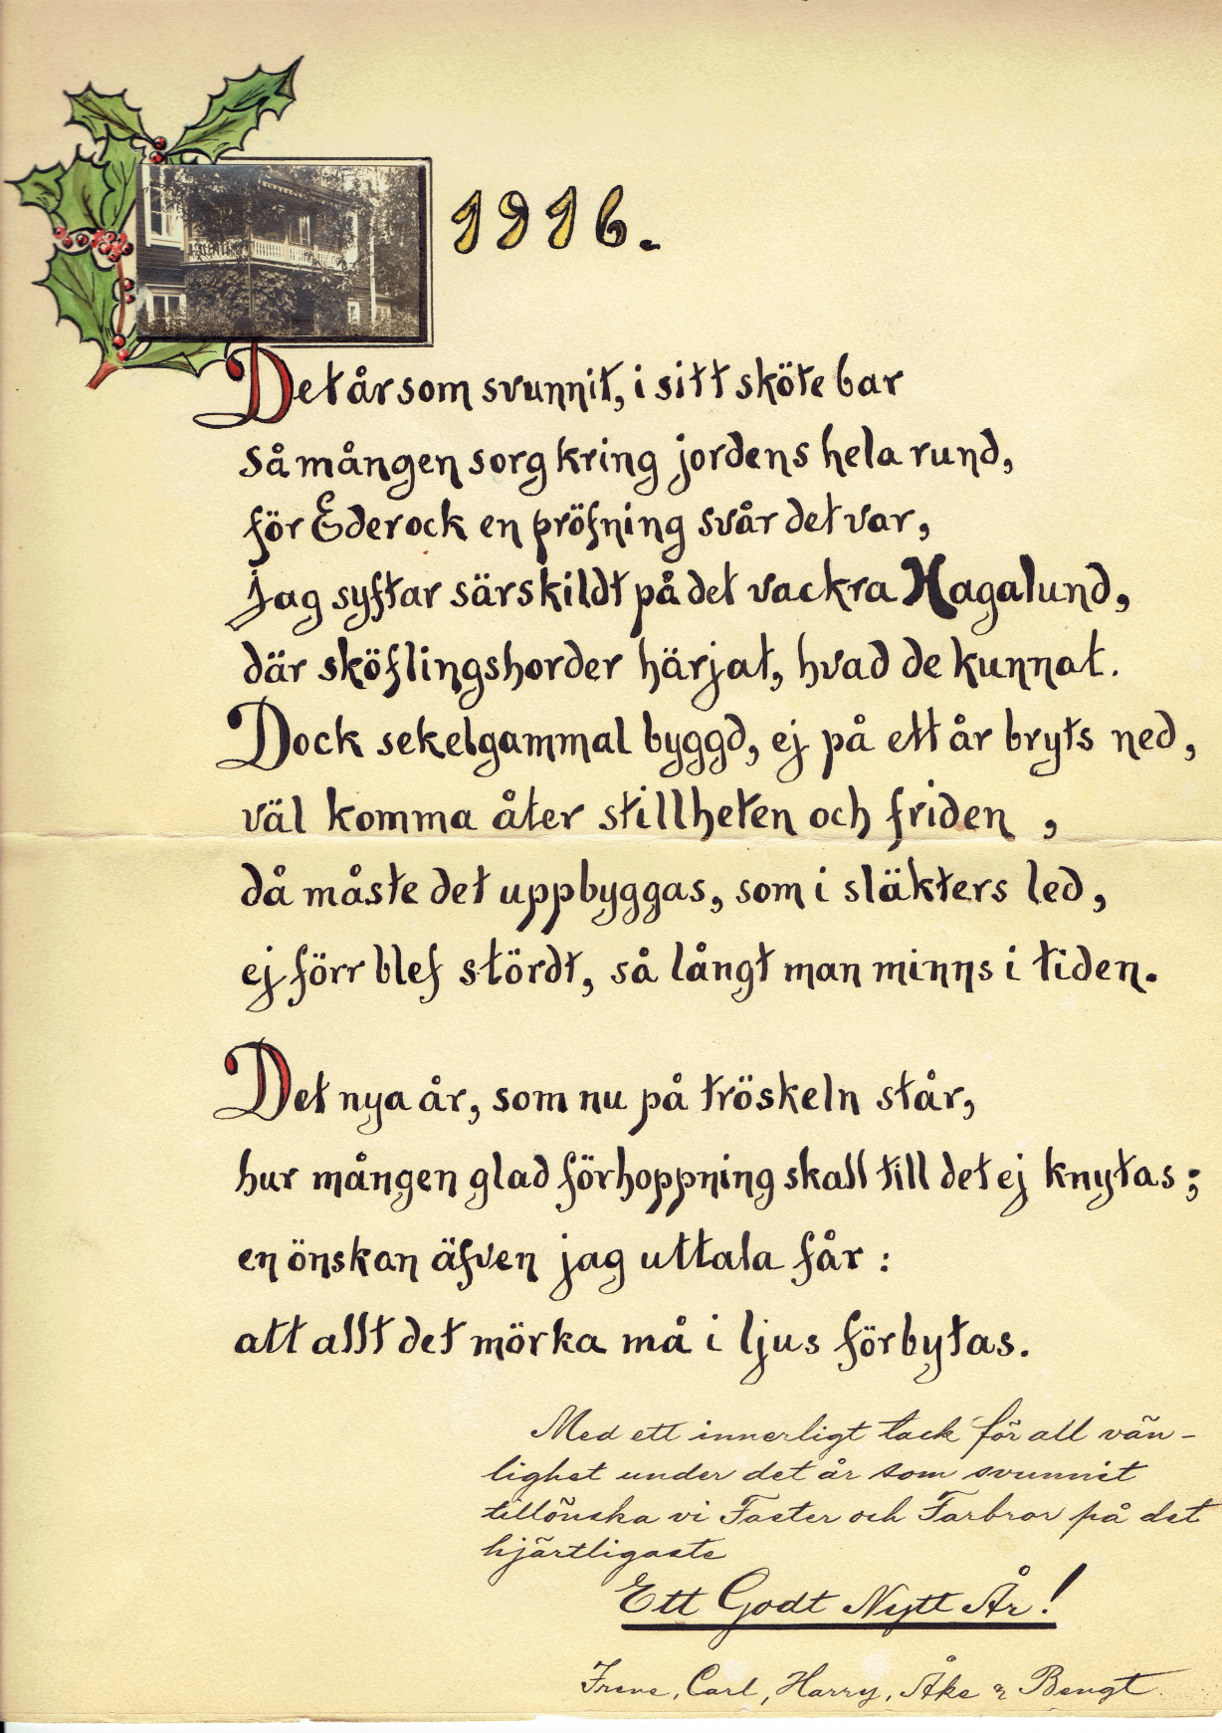 1916.
Det år som svunnit, i sitt sköte bar
så mången sorg kring jordens hela rund,
för Ederock en pröfning svår det var,
jag syftar särskildt på det vackra Hagalund,
där sköflingshorder härjat, hvad de kunnat.
Dock sekelgammal byggd, ej på ett år bryts ned,
väl komma åter stillheten och friden,
då måste det uppbyggas, som i släkters led,
ej förr blef stördt, så långt man minns i tiden.
Det nya år, som nu på tröskeln står,
hur mången glad förhoppning skall till det ej knytas;
en önskan äfven jag uttala får:
att allt det mörka må i ljus förbytas.
Med ett innerligt tack för all vän-
lighet under det år som svunnit
tillönska vi Faster och Farbror på det
hjärtligaste
Ett Godt Nytt År!
Irene, Carl, Harry, Åke & Bengt